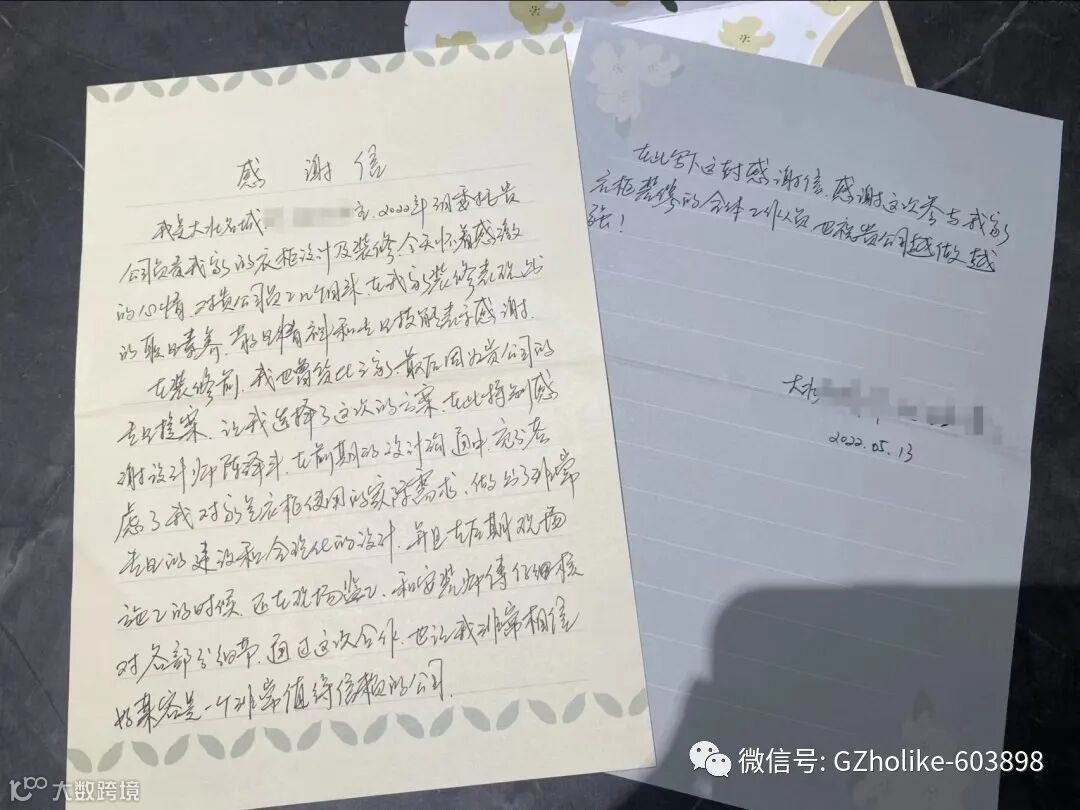 感谢信
我是大水名城 主,2022年3月委托贵
公司负责我家的衣柜设计及装修,今天怀着感激
的心情,对贵公司员工几个月来,在我家装修表现出
的职业素养、敬业精神和专业技能表示感谢。
在装修前,我也曾货比三家,最后因为贵公司的
专业提案,让我选择了这次的方案,在此特别感
谢设计师陈泽斗,在前期的设计沟通中,充分考
虑了我对家里衣柜使用的实际需求,做出了非常
专业的建议和合理化的设计,并且在后期现场
施工的时候,还在现场监工,和安装师傅仔细核
对各部分细节,通过这次合作,也让我非常相信
好莱客是一个非常值得信赖的公司。
在此写下这封感谢信,感谢这次参与我家
衣柜装修的全体工作人员,也祝贵公司越做越
强!
大水
2022.05.13
微信号: GZholike-603898
大数跨境